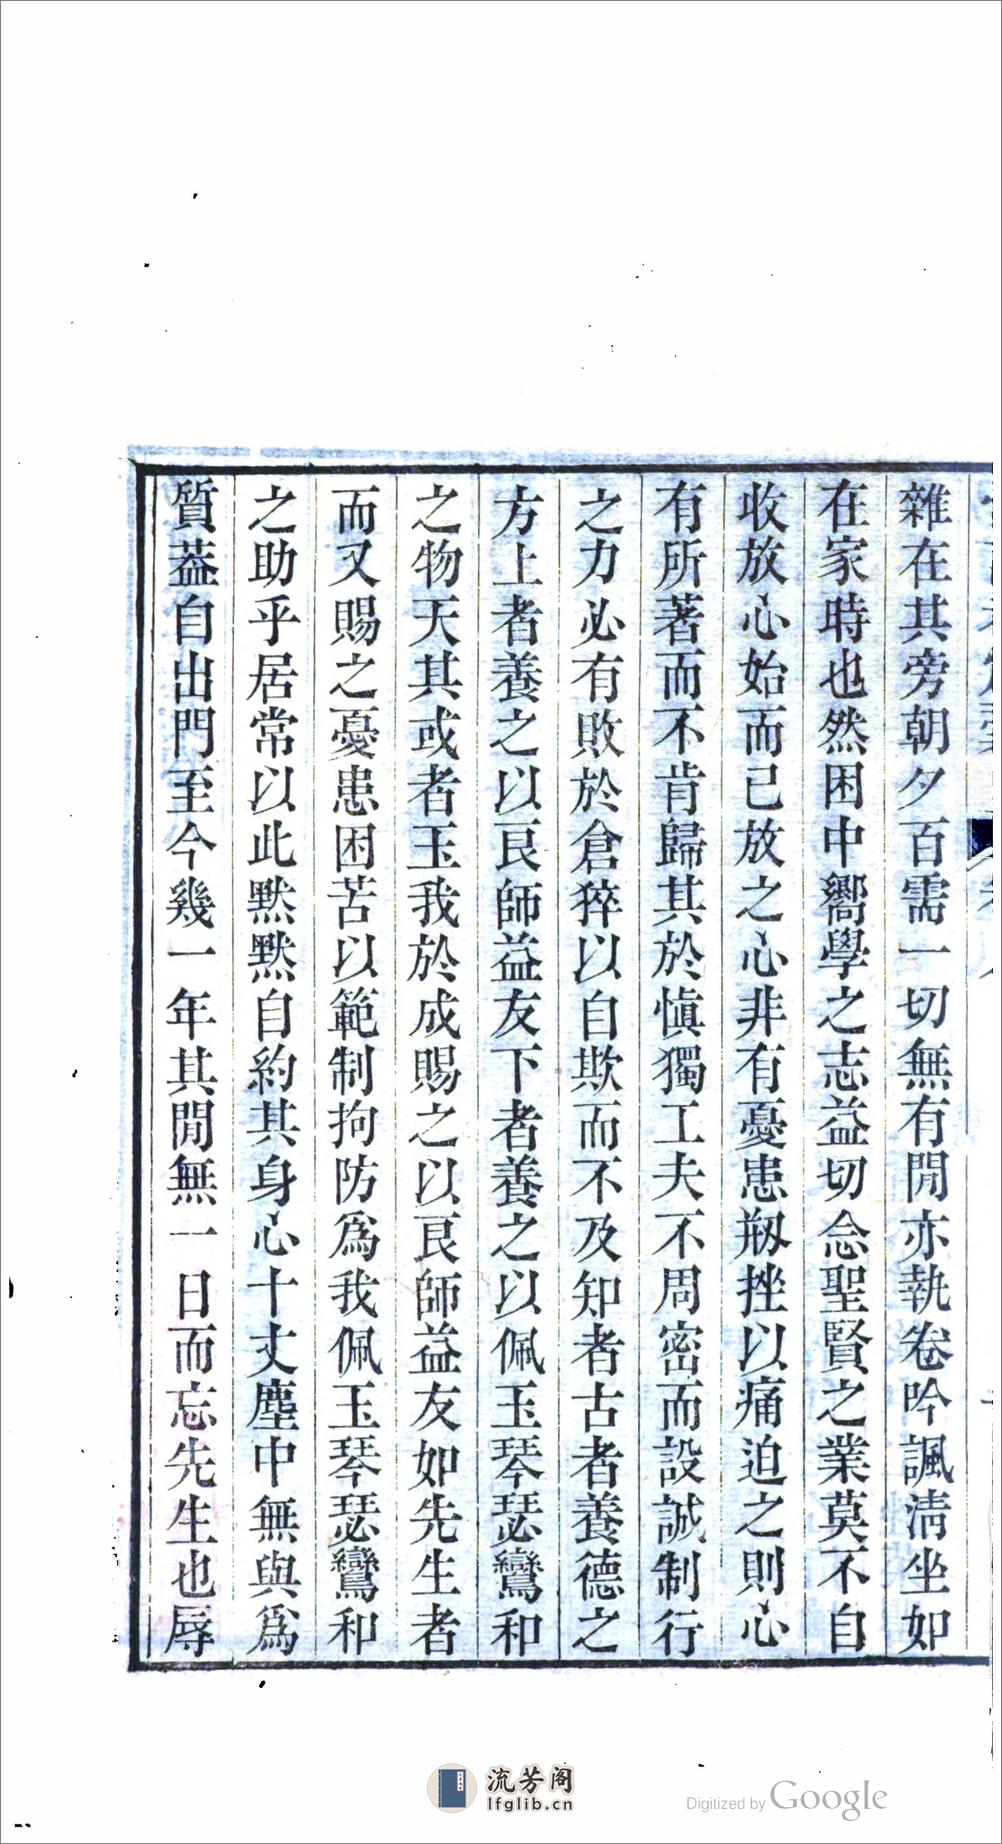 雜在其旁朝夕百需一切無有閒亦執卷吟諷淸坐如
在家時也然困中嚮學之志益切念聖賢之業莫不自
收放心始而已放之心非有憂患剏挫以痛迫之則心
有所著而不肯歸其於愼獨工夫不周密而設誠制行
之力必有敗於倉猝以自欺而不及知者古者養德之
方上者養之以良師益友下者養之以佩玉琴瑟鸞和
之物天其或者玉我於成賜之以良師益友如先生者
而又賜之憂患困苦以範制拘防爲我佩玉琴瑟鸞和
之助乎居常以此默默自約其身心十丈塵中無與爲
質葢自出門至今幾一年其閒無一日而忘先生也辱
流芳阁
lfglib.cn
Digitized by Google